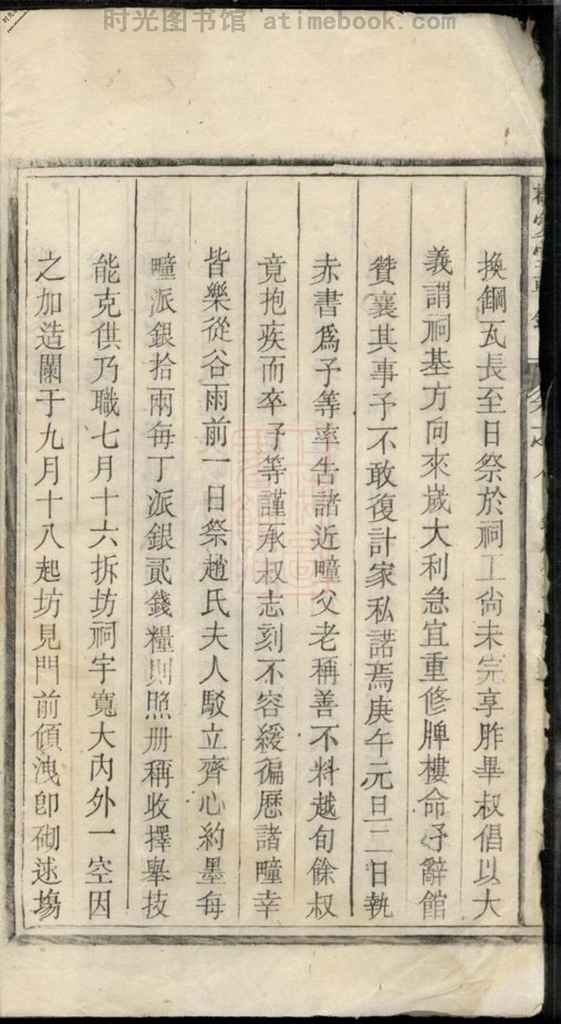 时光图书馆 atimebook.com
換鋼瓦長至日祭於祠工尚未完享胙畢叔倡以大
義謂祠基方向來嵗大利急宜重修牌樓命予辭館
贊襄其事予不敢復計家私諾焉庚午元旦二日執
赤書爲予等率告諸近疃父老稱善不料越旬餘叔
竟抱疾而卒予等謹承叔志刻不容緩徧歷諸疃幸
皆樂從谷雨前一日祭趙氏夫人駁立齊心約墨每
疃派銀拾兩每丁派銀貳錢糧則照册稱收擇舉技
能克供乃職七月十六拆坊祠宇寬大內外一空因
之加造闌于九月十八起坊見門前傾洩卽砌述塲